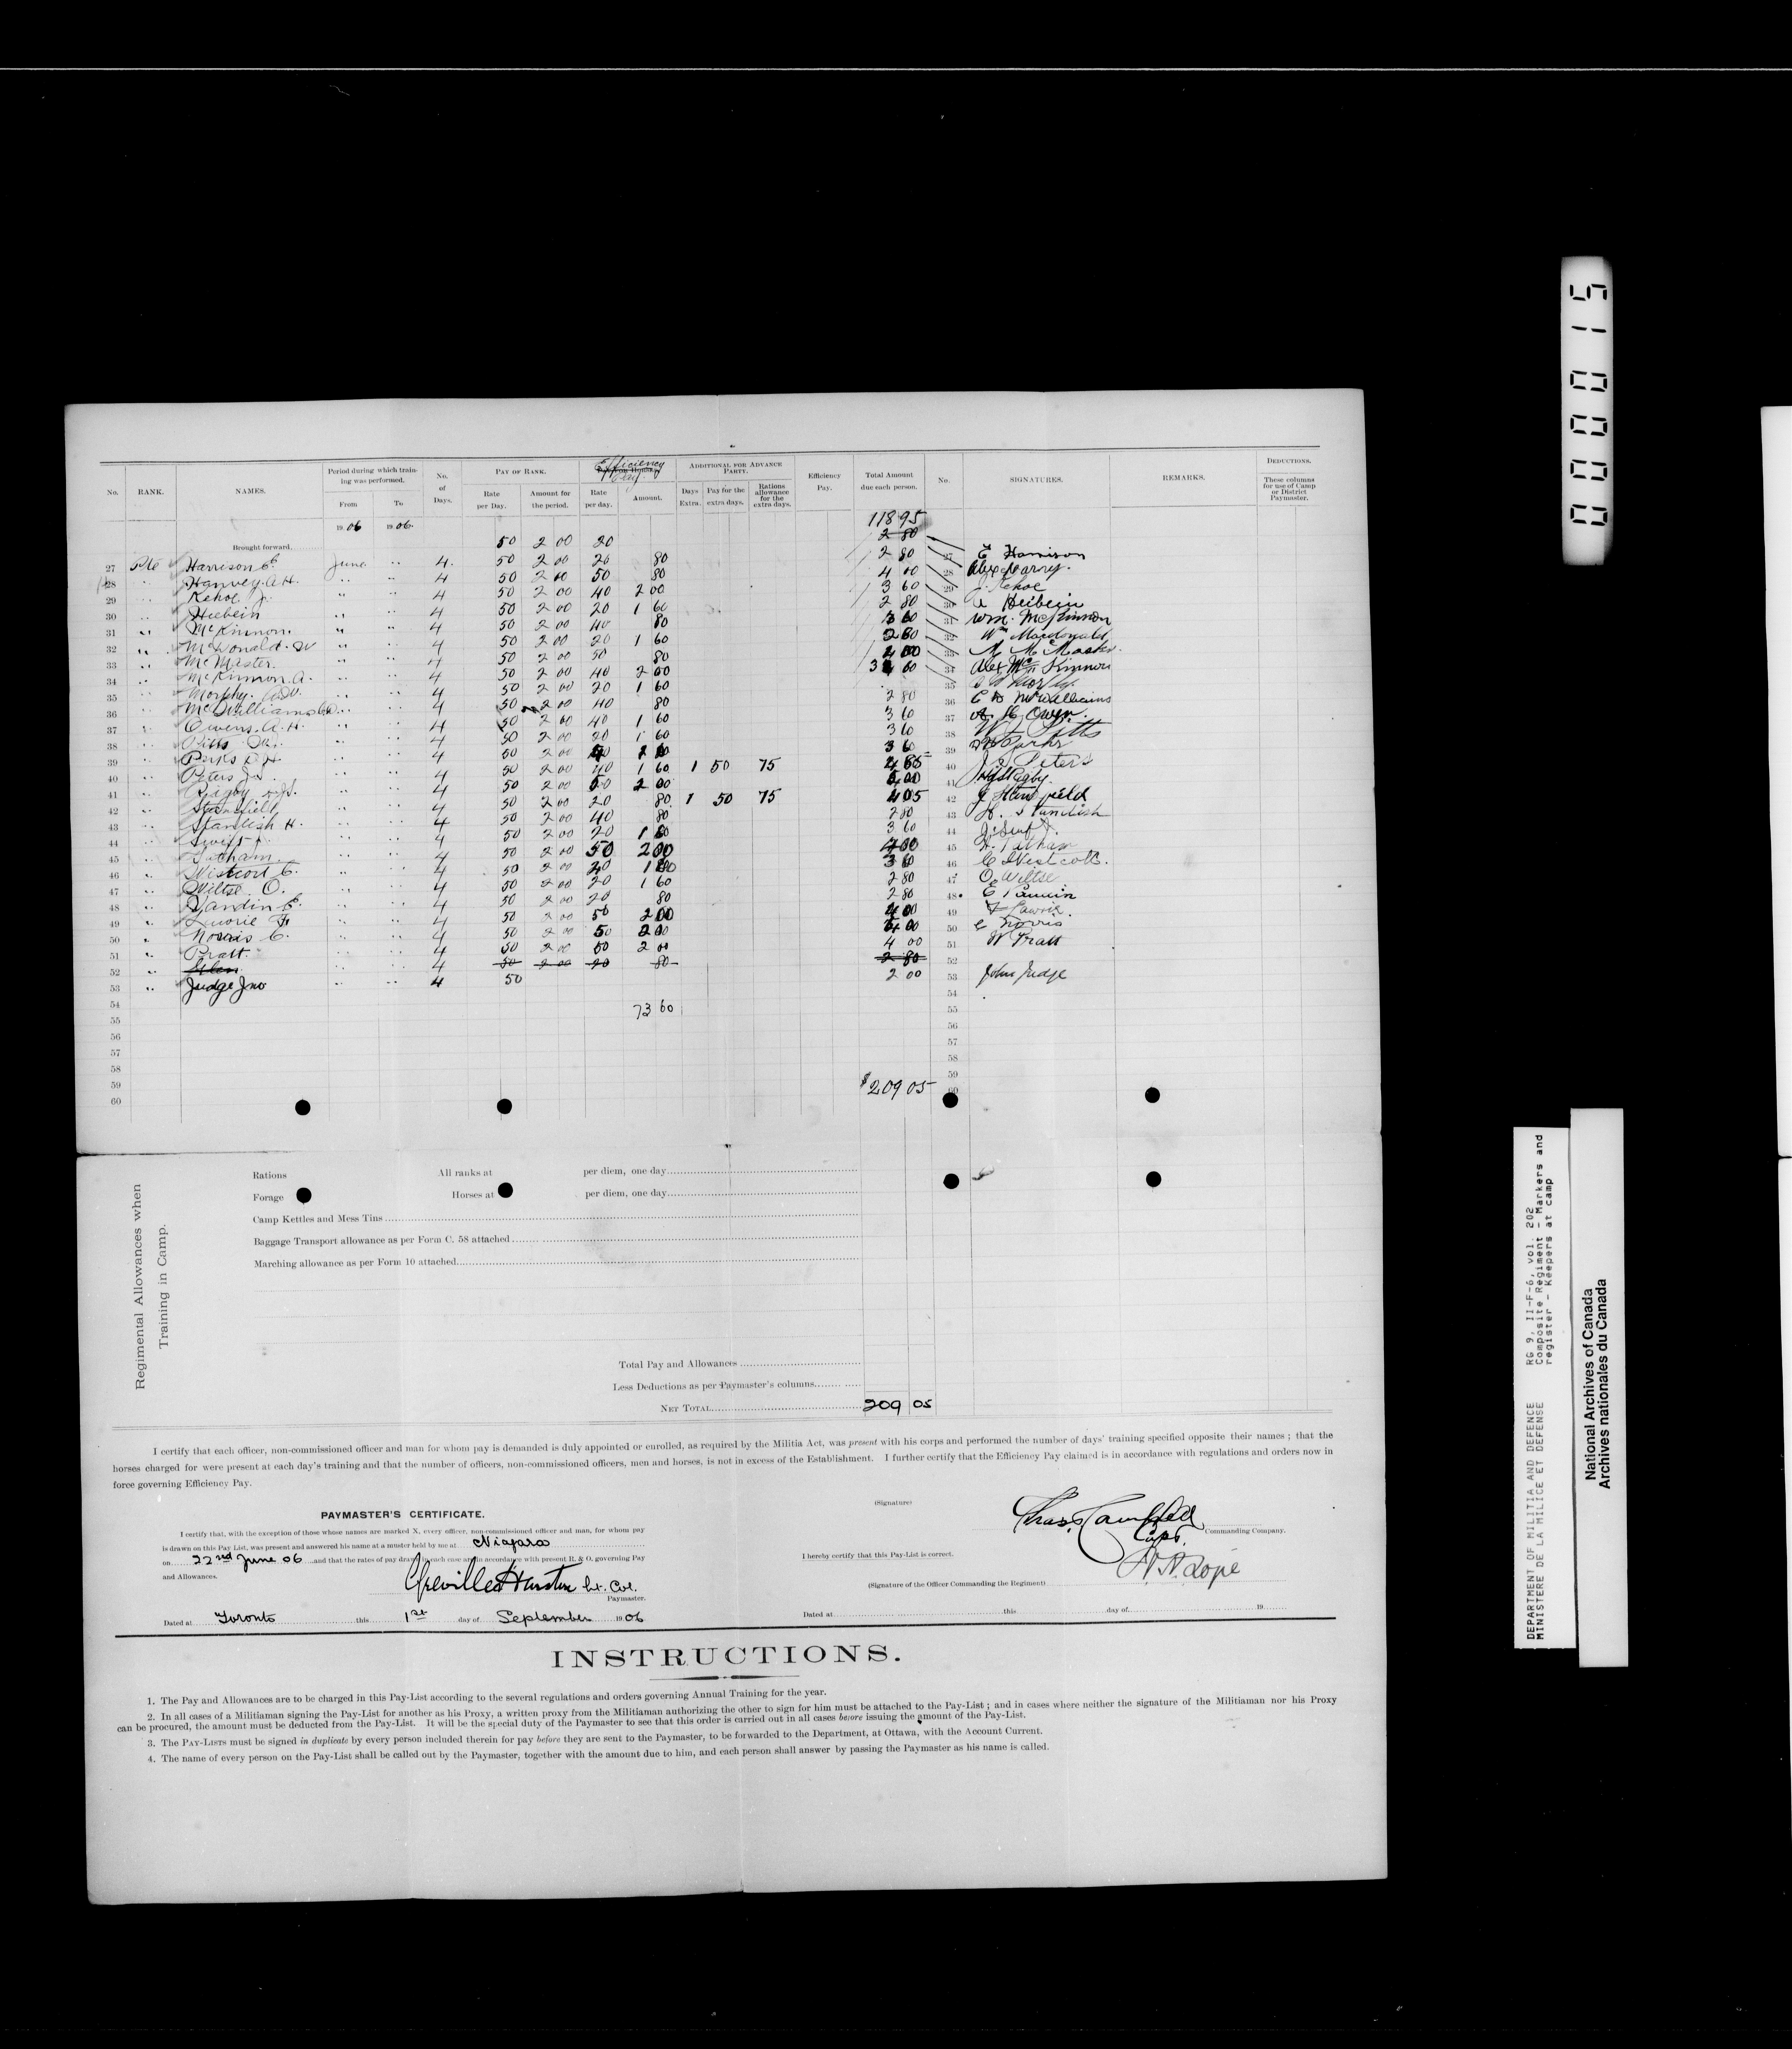 000015
Efficiency
Pay.
No. RANK. NAMES. Period during which training was performed. From To No. of Days. PAY OF RANK. Rate per Day. Amount for the period. Rate per day. Amount. ADDITIONAL FOR ADVANCE PARTY. Days Extra. Pay for the extra days. Rations allowance for the extra days. Efficiency Pay. Total Amount due each person. No. SIGNATURES. REMARKS. DEDUCTIONS. These columns for use of Camp or District Paymaster.
1906 1906. 118 95
Brought forward 50 2 00 20 2 80
27 Pte Harrison E. June " 4. 50 2 00 80 2 80 27 E Harrison
28 " Harvey. A.H. " " 4 50 2 00 50 80 4 00 28
29 " Kehoe J. " " 4 50 2 00 40 2 00 3 60 29 J. Kehoe
30 " Heibein " " 4 50 2 00 20 1 60 2 80 30 Heibein
31 " McKinnon. " " 4 50 2 00 40 80 3 60 31 Wm. McKinnon
32 " McDonald. W " " 4 50 2 00 20 1 60 2 80 32 Wm Macdonald
33 " McMaster. " " 4 50 2 00 50 80 4 00 33 McMaster.
34 " McKinnon. A. " " 4 50 2 00 40 2 00 3 60 34 Alex McKinnon
35 " Morphy. " " 4 50 2 00 20 1 60 35
36 " McWilliams " " 4 50 2 00 40 80 2 80 36 E D McWilliams
37 " Owens. A. H. " " 4 50 2 00 40 1 60 3 60 37 A H Owen.
38 " Pitts " " 4 50 2 00 20 1 60 3 60 38 W Pitts
39 " Perks " " 4 50 2 00 3 60 39
40 " Peters J.S. " " 4 50 2 00 40 1 60 1 50 75 4 85 40 J. S. Peters
41 " Rigby " " 4 50 2 00 50 2 00 4 00 41 Rigby.
42 " Stansfield " " 4 50 2 00 20 80 1 50 75 4 05 42 J Stansfield
43 " Standish H. " " 4 50 2 00 40 80 2 80 43 H. Standish
44 " Swift J. " " 4 50 2 00 20 1 60 3 60 44
45 " Tatham. " " 4 50 2 00 50 2 00 4 00 45 Tatham
46 " Westcott C. " " 4 50 2 00 1 60 3 60 46 C Westcott.
47 " Wiltse. O. " " 4 50 2 00 20 1 60 2 80 47 O. Wiltse
48 " " " 4 50 2 00 20 80 2 80 48
49 " Lawrie F. " " 4 50 2 00 50 2 00 4 00 49 F Lawrie.
50 " Norris C. " " 4 50 2 00 50 2 00 4 00 50 C Norris
51 " Pratt. " " 4 50 2 00 50 2 00 4 00 51 W Pratt
52 " " " 4 50 2 00 20 80 2 80 52
53 " Judge Jno " " 4 50 2 00 53 John Judge
54 54
55 73 60 55
56 56
57 57
58 58
59 59
60 $209 05 60
Regimental Allowances when
Training in Camp.
Rations All ranks at per diem, one day
Forage Horses at per diem, one day
Camp Kettles and Mess Tins
Baggage Transport allowance as per Form C. 58 attached
Marching allowance as per Form 10 attached
Total Pay and Allowances
Less Deductions as per Paymaster's columns
NET TOTAL 209 05
I certify that each officer, non-commissioned officer and man for whom pay is demanded is duly appointed or enrolled, as required by the Militia Act, was present with his corps and performed the number of days' training specified opposite their names ; that the
horses charged for were present at each day's training and that the number of officers, non-commissioned officers, men and horses, is not in excess of the Establishment. I further certify that the Efficiency Pay claimed is in accordance with regulations and orders now in
force governing Efficiency Pay.
PAYMASTER'S CERTIFICATE.
I certify that, with the exception of those whose names are marked X, every officer, non-commissioned officer and man, for whom pay
is drawn on this Pay List, was present and answered his name at a muster held by me at Niagara
on 22nd June 06 and that the rates of pay drawn in each case are in accordance with present R. & O. governing Pay
and Allowances.
Greville Harston Lt. Col.
Paymaster.
Dated at Toronto this 1st day of September 1906
(Signature)
Capt. Commanding Company.
I hereby certify that this Pay-List is correct.
(Signature of the Officer Commanding the Regiment)
Dated at this day of 19
INSTRUCTIONS.
1. The Pay and Allowances are to be charged in this Pay-List according to the several regulations and orders governing Annual Training for the year.
2. In all cases of a Militiaman signing the Pay-List for another as his Proxy, a written proxy from the Militiaman authorizing the other to sign for him must be attached to the Pay-List ; and in cases where neither the signature of the Militiaman nor his Proxy
can be procured, the amount must be deducted from the Pay-List. It will be the special duty of the Paymaster to see that this order is carried out in all cases before issuing the amount of the Pay-List.
3. The PAY-LISTS must be signed in duplicate by every person included therein for pay before they are sent to the Paymaster, to be forwarded to the Department, at Ottawa, with the Account Current.
4. The name of every person on the Pay-List shall be called out by the Paymaster, together with the amount due to him, and each person shall answer by passing the Paymaster as his name is called.
DEPARTMENT OF MILITIA AND DEFENCE RG 9, II-F-6, vol. 202
MINISTERE DE LA MILICE ET DEFENSE Composite Regiment - Markers and
register - Keepers at camp
National Archives of Canada
Archives nationales du Canada